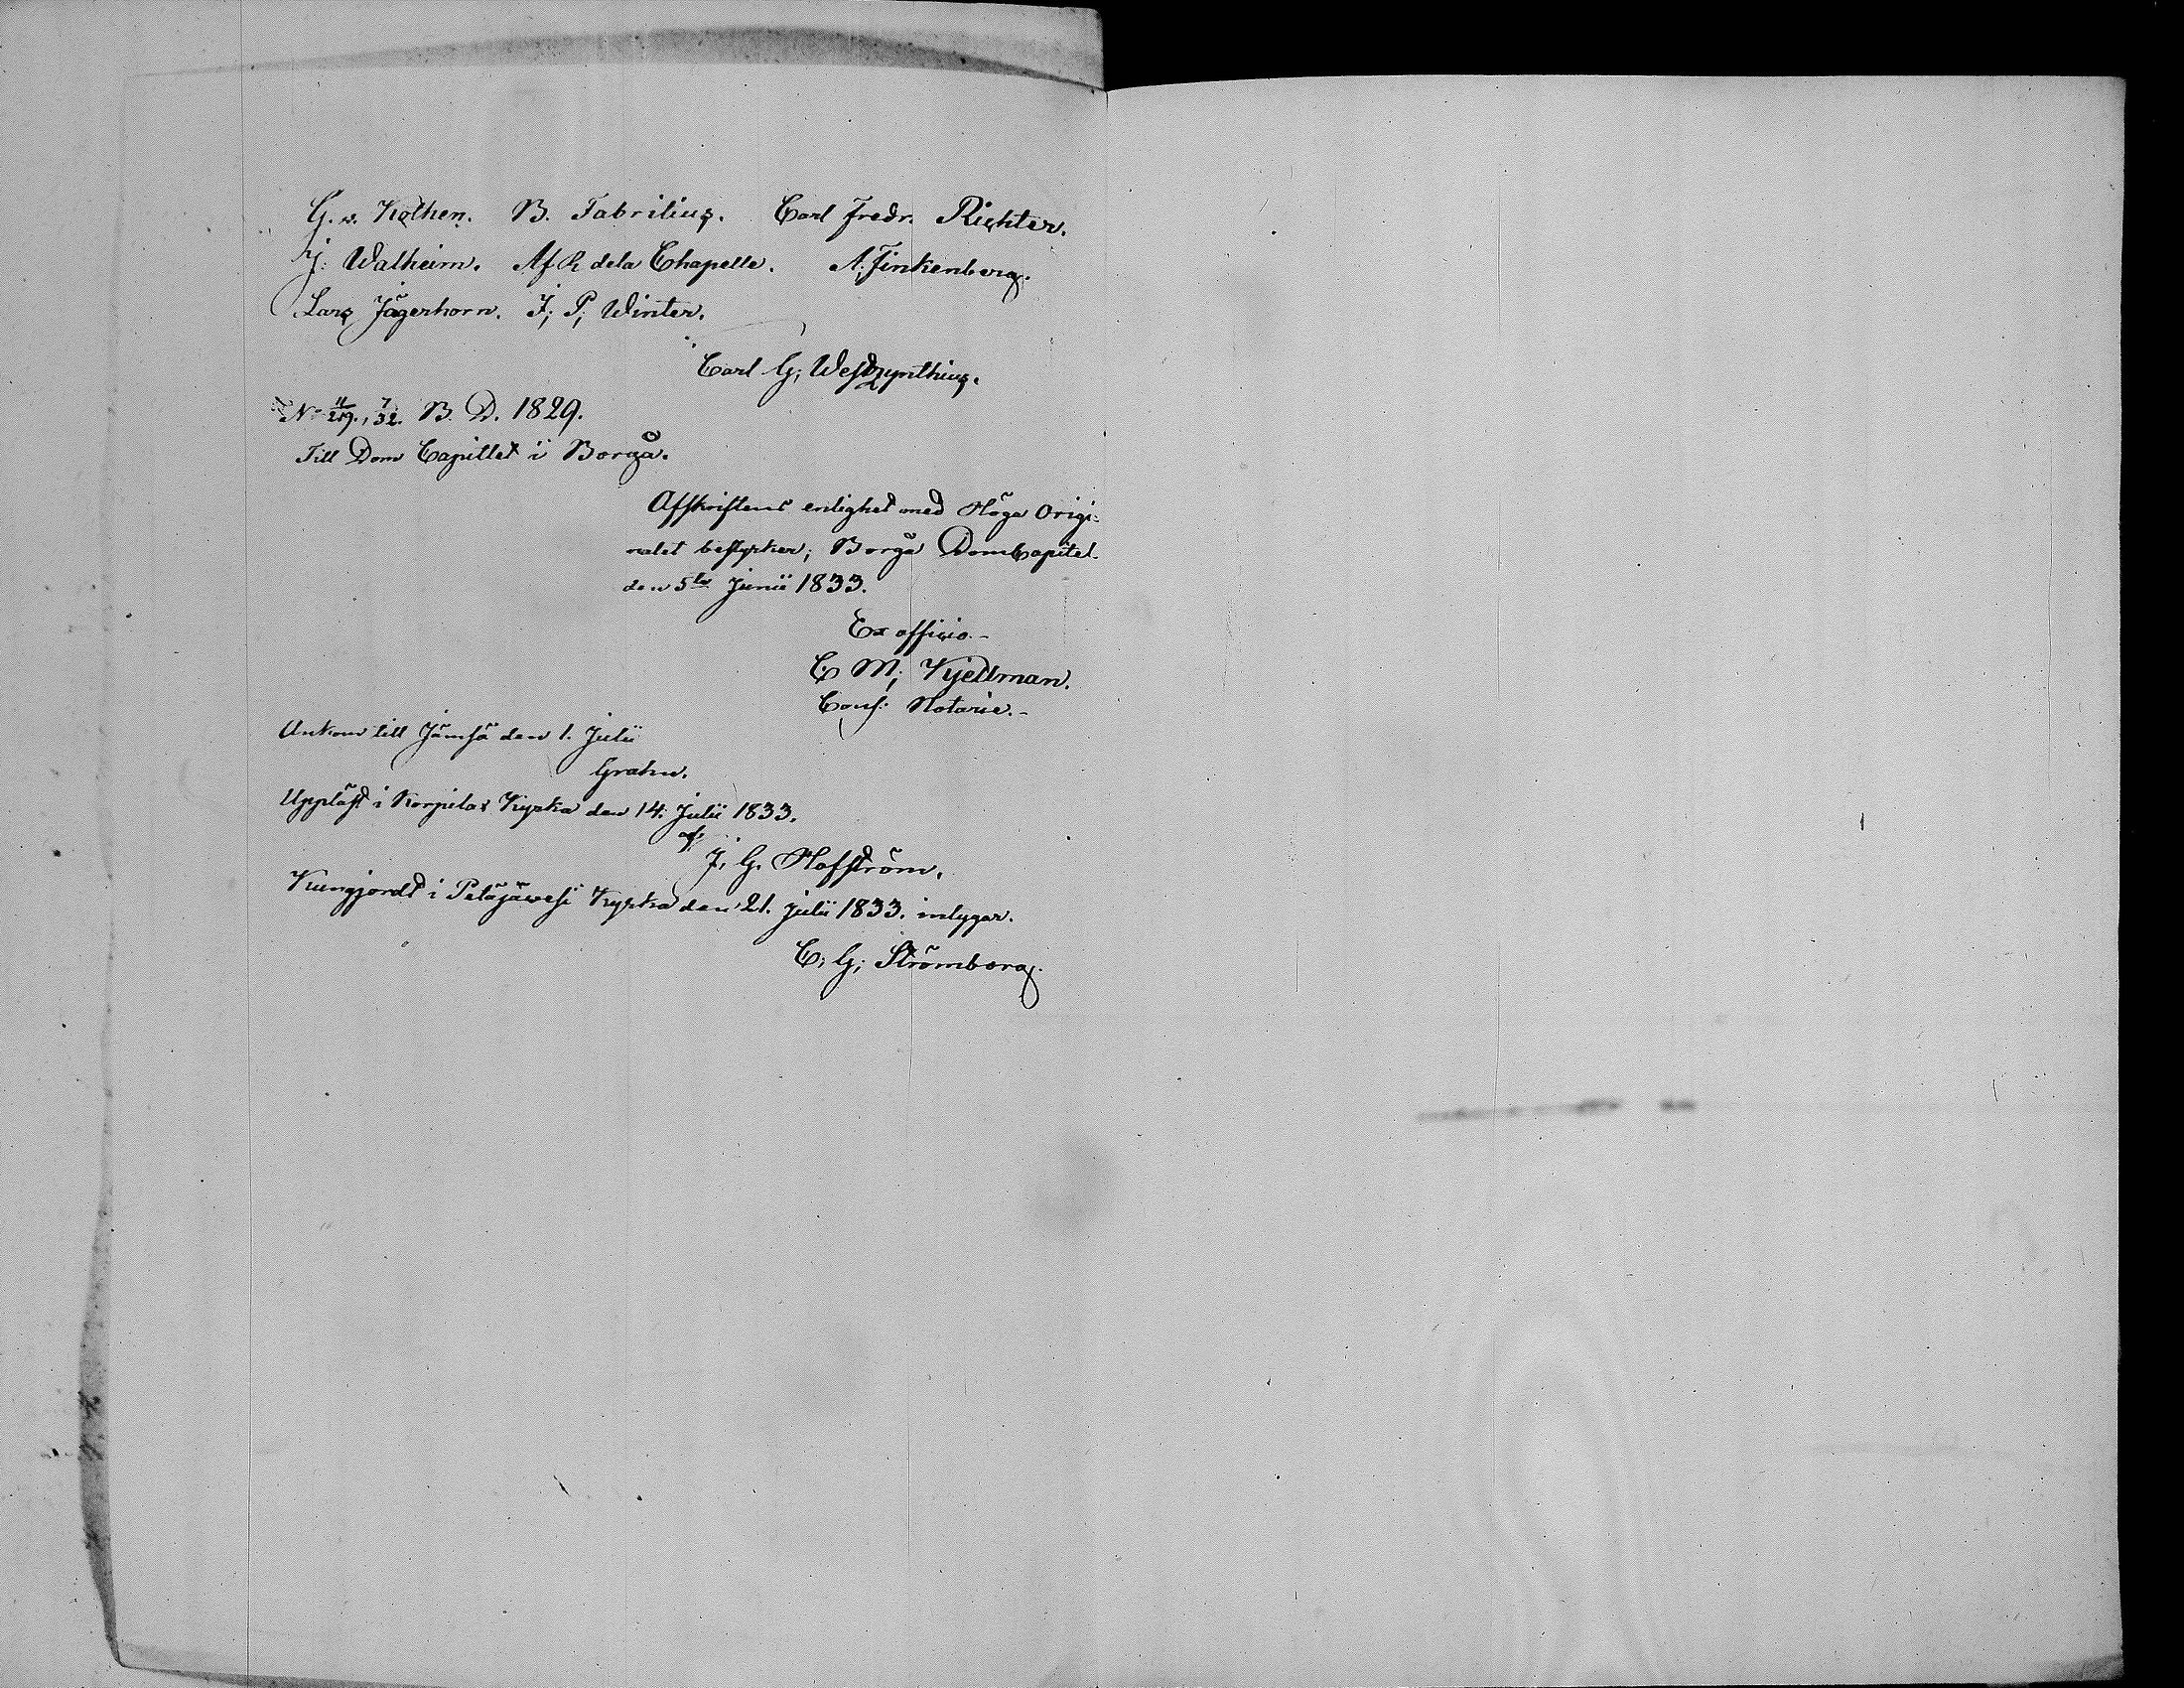 G. v. Kothen. B. Fabritius. Carl Fredr. Richter.
J: Walheim. Af R dela Chapelle. A. Finkenberg.
Lars Jägerhorn. J; P; Winter.
Carl G; Westzynthius.
No 11/219., 7/32. B. D. 1829.
Till Dom Capitlet i Borgå.
Afskriftens enlighet med Höga Origi-
nalet bestyrker; Borgå DomCapitel
den 5te Junii 1833.
Ex officio.-
C M; Kjellman.
Cons: Notarie.-
Ankom till Jämsä den 1. Julii
Grahn.
Uppläst i Korpilax Kyrka den 14. Julii 1833.
af.
J. G. Hoffström.
Kungjordt i Petäjäwesi Kyrka den 21. Julii 1833. intygar.
C; G; Strömborg.